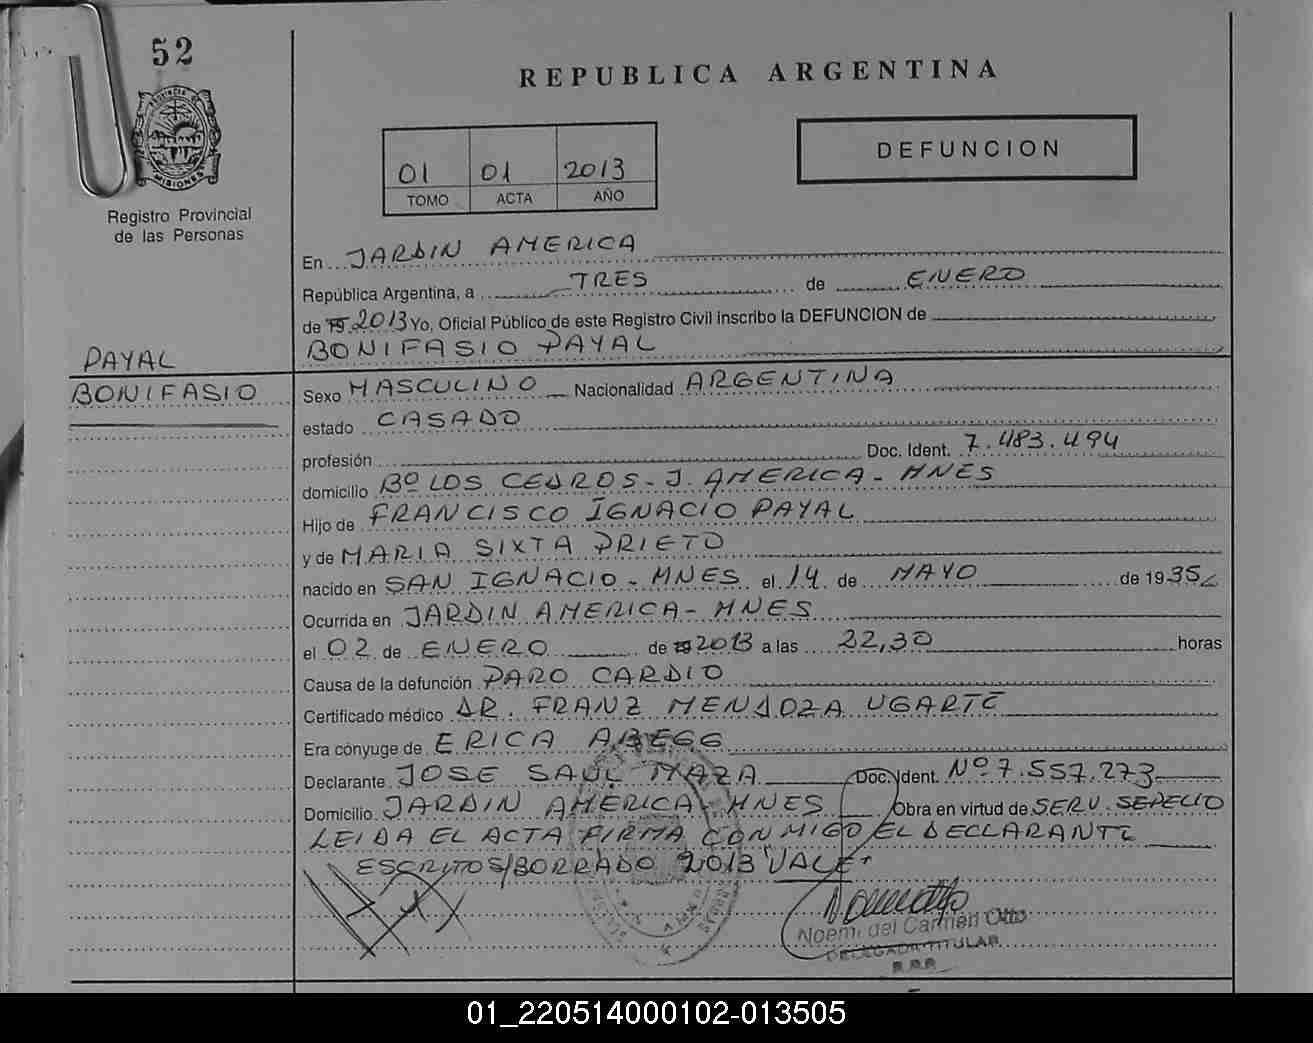 52
REPUBLICA ARGENTINA
PROVINCIA DE
MISIONES
Registro Provincial
de las Personas
01 01 2013
TOMO ACTA AÑO
DEFUNCION
En JARDIN AMERICA
República Argentina, a TRES de ENERO
de 19 2013 Yo, Oficial Público de este Registro Civil inscribo la DEFUNCION de
BONIFASIO PAYAL
PAYAL
BONIFASIO
Sexo MASCULINO Nacionalidad ARGENTINA
estado CASADO
profesión Doc. Ident. 7.483.494
domicilio Bº LOS CEDROS - J. AMERICA - MNES
Hijo de FRANCISCO IGNACIO PAYAL
y de MARIA SIXTA PRIETO
nacido en SAN IGNACIO - MNES el 14 de MAYO de 1935
Ocurrida en JARDIN AMERICA - MNES
el 02 de ENERO de 19 2013 a las 22,30 horas
Causa de la defunción PARO CARDIO
Certificado médico DR. FRANZ MENDOZA UGARTE
Era cónyuge de ERICA ABEGG
Declarante JOSE SAUL MAZA Doc. Ident. Nº 7.557.273
Domicilio JARDIN AMERICA - MNES Obra en virtud de SERV. SEPELIO
LEIDA EL ACTA FIRMA CONMIGO EL DECLARANTE
ESCRITOS/BORRADO 2013 VALE
Noemi del Carmen Otto
DELEGADA TITULAR
R.P.P.
01_220514000102-013505